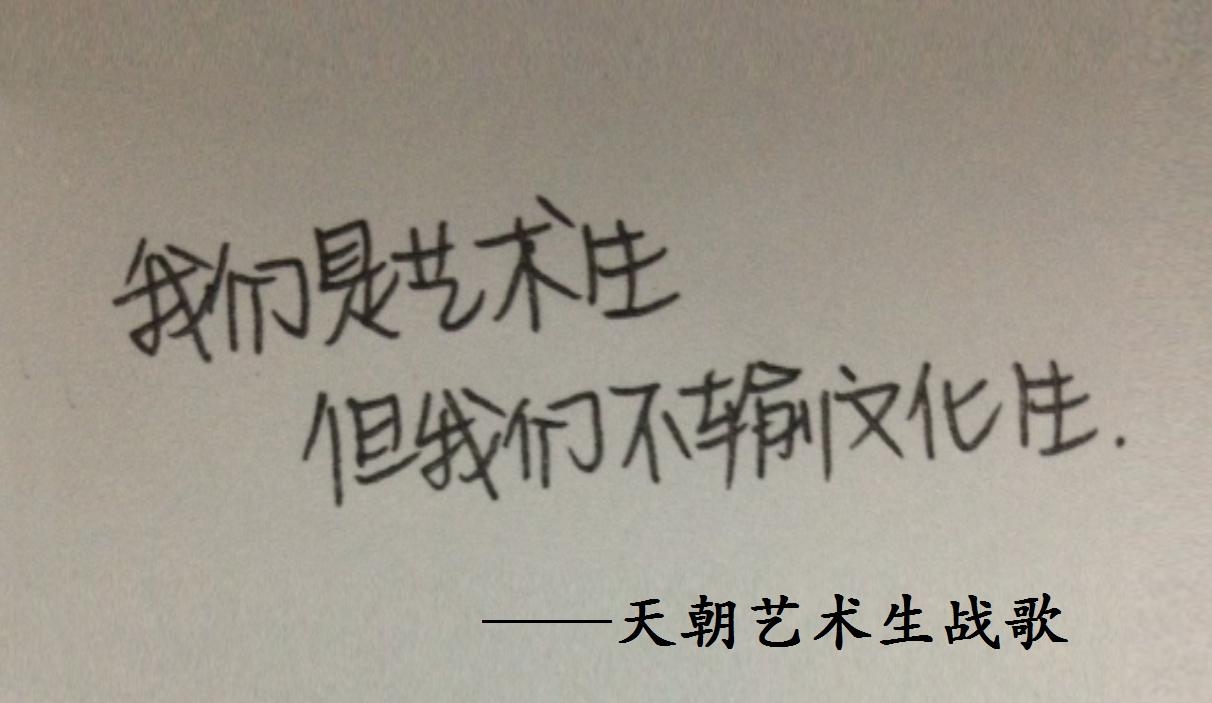 我们是艺术生
但我们不输文化生.
——天朝艺术生战歌